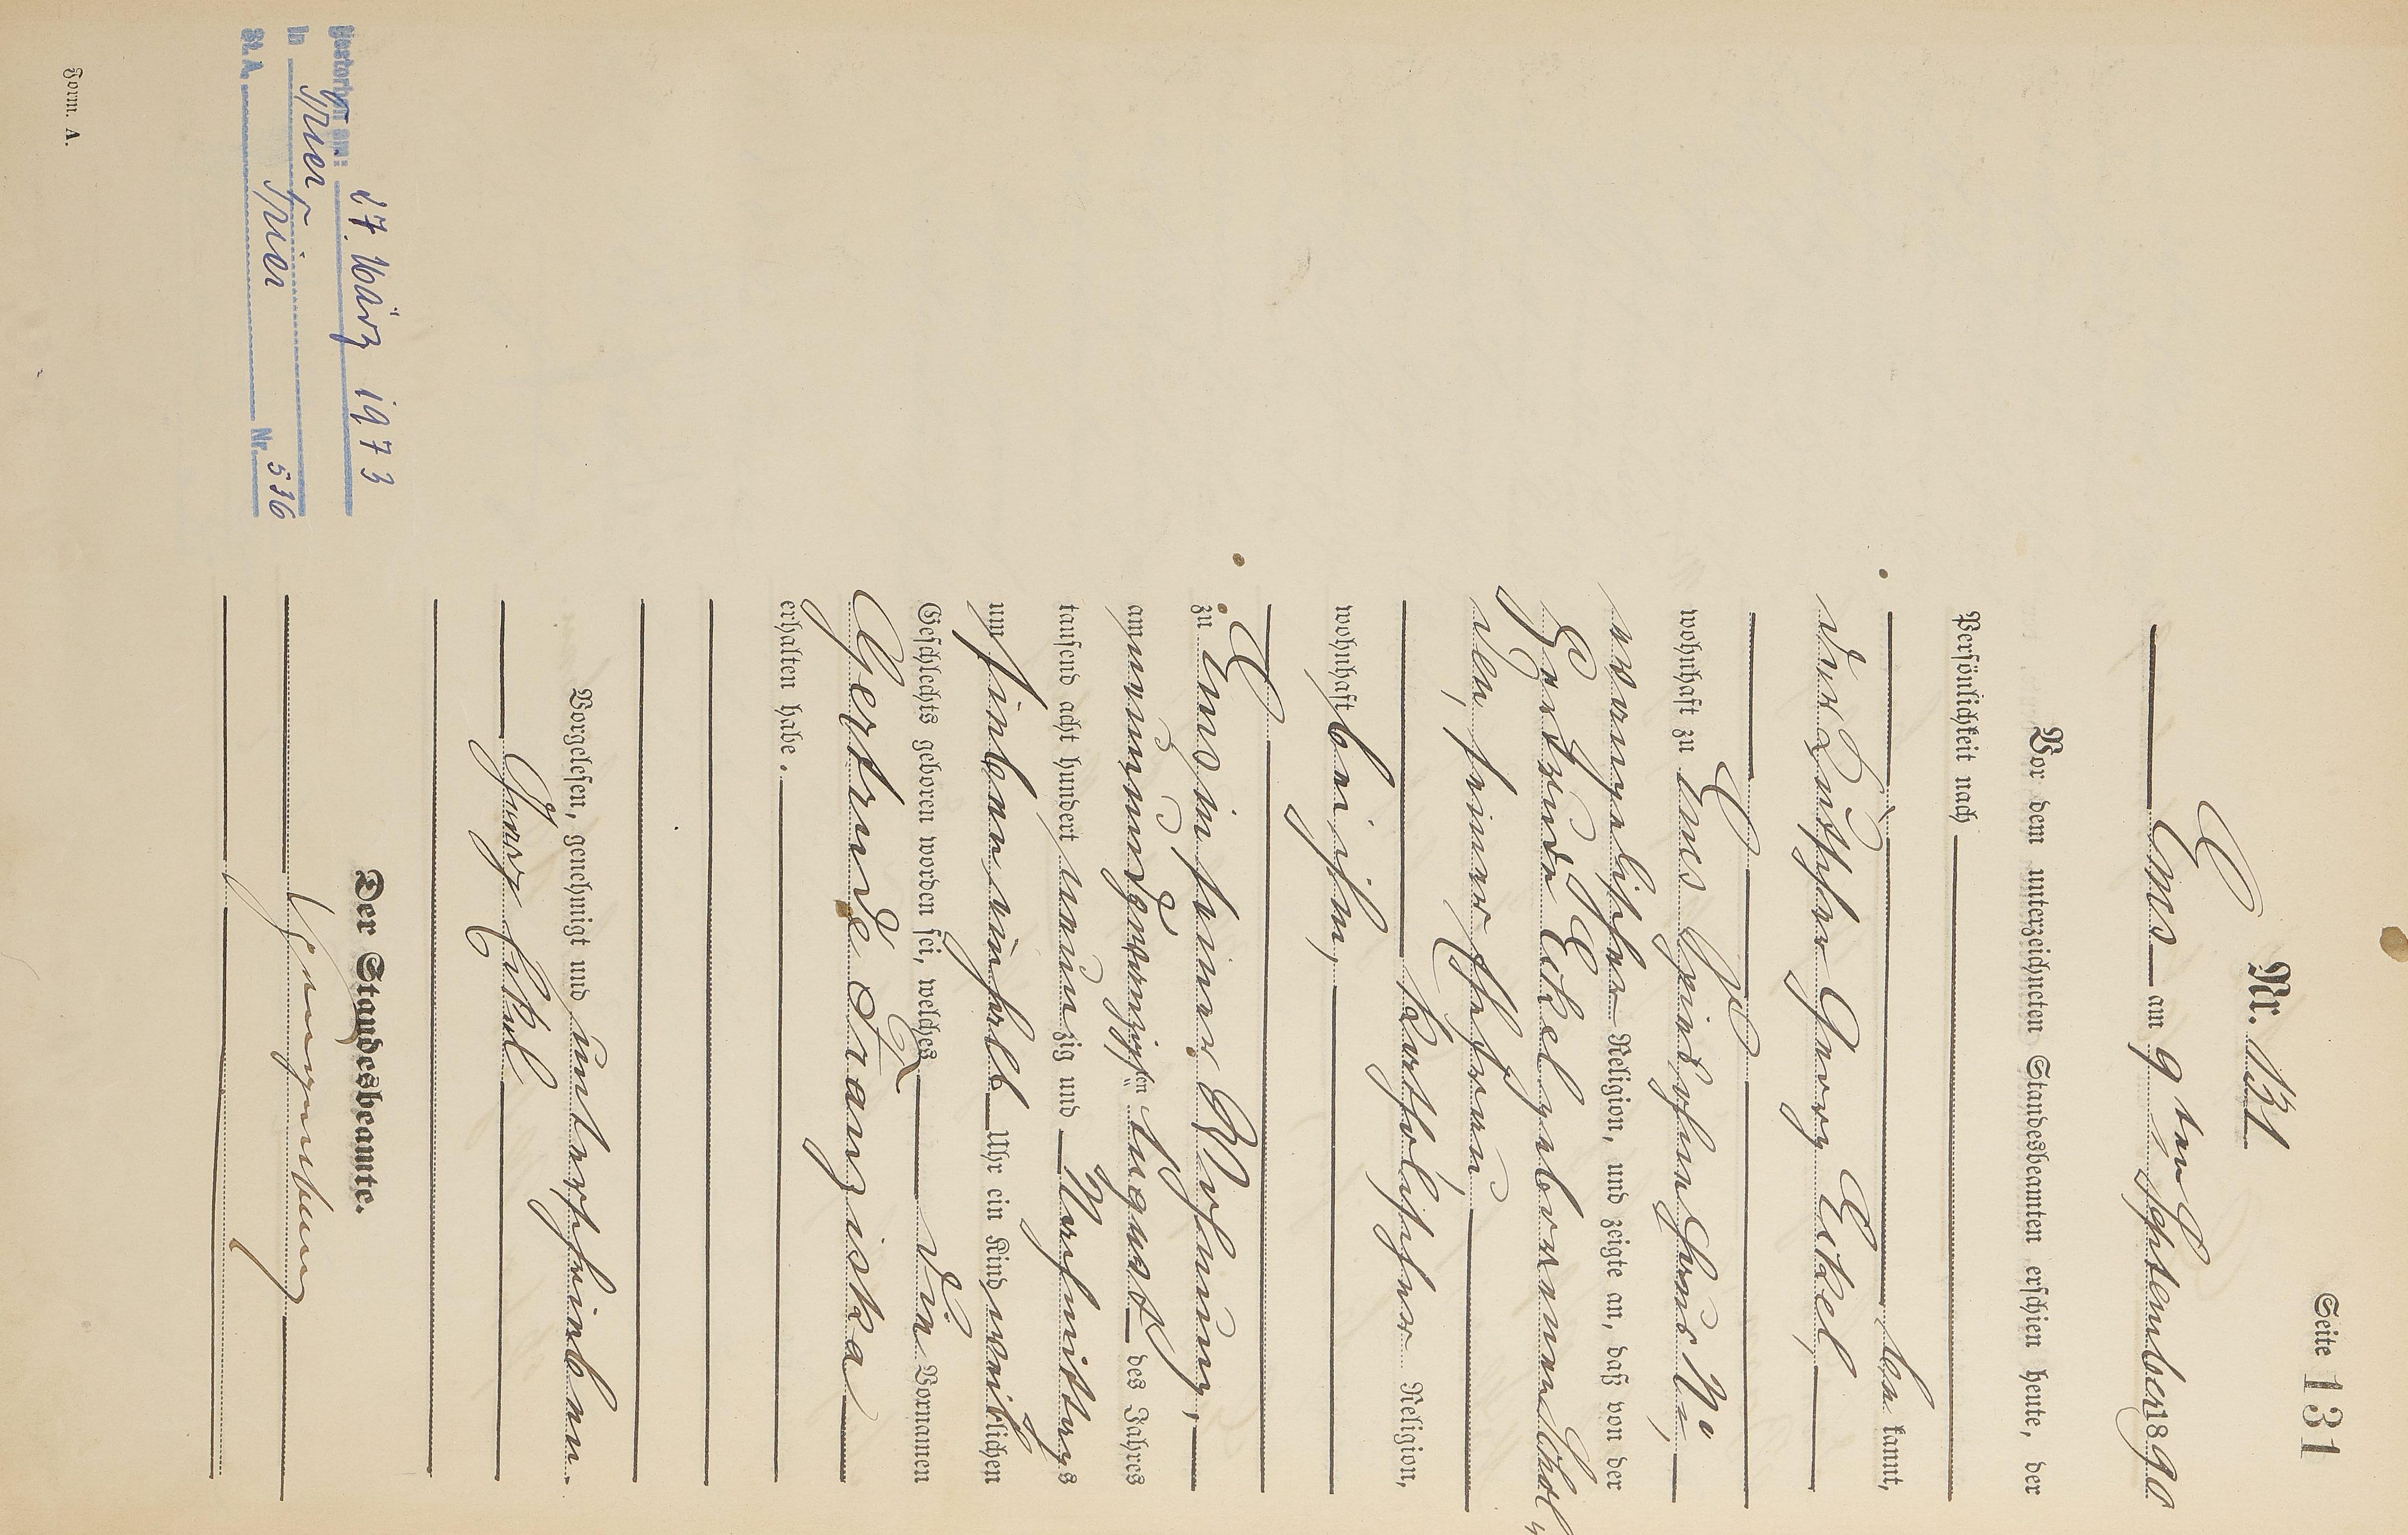 Seite 131
Nr. 131
Ems am 9ten September 1890
Vor dem unterzeichneten Standesbeamten erschien heute, der
Persönlichkeit nach
be kannt,
der Georg Eckel,
wohnhaft zu Ems
evangelischer Religion, und zeigte an, daß von der
Gertrude Eckel geborenen
seiner Ehefrau,
katholischer Religion,
wohnhaft bei ihm,
zu Ems in seiner Wohnung,
am neunundzwanzigsten August des Jahres
tausend acht hundert neunzig und Nachmittags
um sieben einhalb Uhr ein Kind weiblichen
Geschlechts geboren worden sei, welches die Vornamen
Gertrude Franziska
erhalten habe.
Vorgelesen, genehmigt und unterschrieben.
Georg Eckel
Der Standesbeamte.
Gestorben am: 27. März 1973
in Trier
St. A. Trier Nr. 536
Form. A.